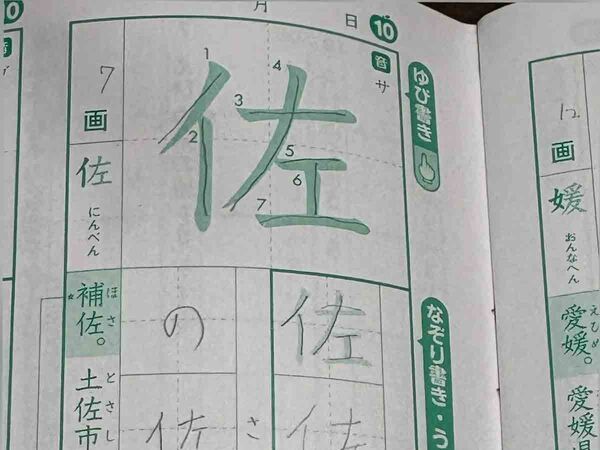 月 日 10
ゆび書き
音 サ
佐
1
2
3
4
5
6
7
7画
佐
にんべん
補佐。
ほさ
土佐市
とさし
なぞり書き・う
佐
佐
さ
の
佐
12画
媛
おんなへん
愛媛。
えひめ
愛媛県